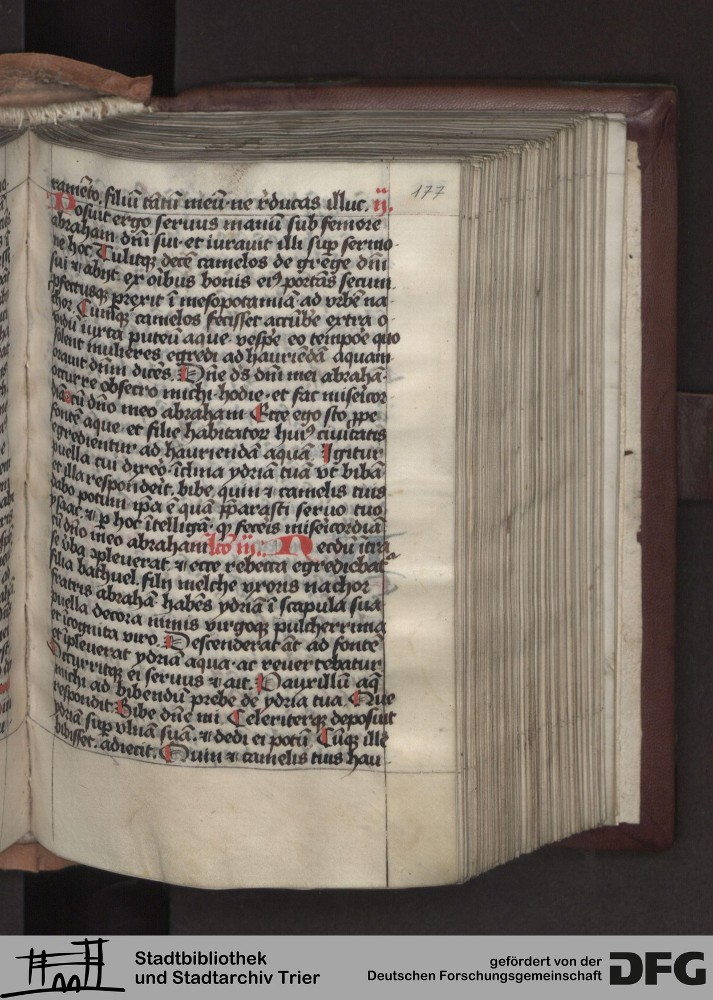 177
ramēto. filiū tātū meū ne rducas illuc. ij.
Posuit ergo seruus manū sub femore
abraham dñi sui et iurauit illi sup sermo
ne hoc. Tulitqꝫ decē camelos de grege dñi
sui ⁊ abijt. ex oībus bonis eiꝰ portās secum
ꝓfectusqꝫ prexit ī mesopotamiā ad vrbē na
chor. Cumqꝫ camelos fecisset accūbe extra o
pidū iuxta puteū aque vespe eo tempoe quo
solent mulieres egredi ad hauriēdā aquam
orauit dnm dicēs. Dñe ds dñi mei abrahā
occurre obsecro michi hodie et fac misēicor
diā cū dño meo abraham Ecce ego sto ꝓpe
fontē aque et filie habitatoꝝ huiꝰ ciuitatis
egredientur ad hauriendā aquā. Igitur
puella cui dixeo īclina ydriā tuā vt bibā
et illa responderit. bibe. quin ⁊ camelis tuis
dabo potum ipa ē quā pparasti seruo tuo
ysaac. ⁊ p hoc ītelligā. qꝫ feceis misēicordiā
cū dño meo abraham lcō iii. Necdū itra
se vba ꝯpleuerat. ⁊ ecce rebecca egrediebat
filia bathuel. filij melche vxoris nachor
fratris abrahā habēs ydriā ī scapula sua
puella decora nimis virgoqꝫ pulcherrima
et īcognita viro. Descenderat āt ad fontē
et īpleuerat ydriā aqua ac reuertebatur
Occurritqꝫ ei seruus ⁊ ait. Pauxillū aq̄
michi ad bibendū prebe de ydria tua. Que
respondit. Bibe dñe mi. Celeriterqꝫ deposuit
ydriā sup vlnā suā. ⁊ dedi ei potū Cūqꝫ ille
bibisset. adiecit. Quin ⁊ camelis tuis hau
Stadtbibliothek
und Stadtarchiv Trier
gefördert von der
Deutschen Forschungsgemeinschaft
DFG